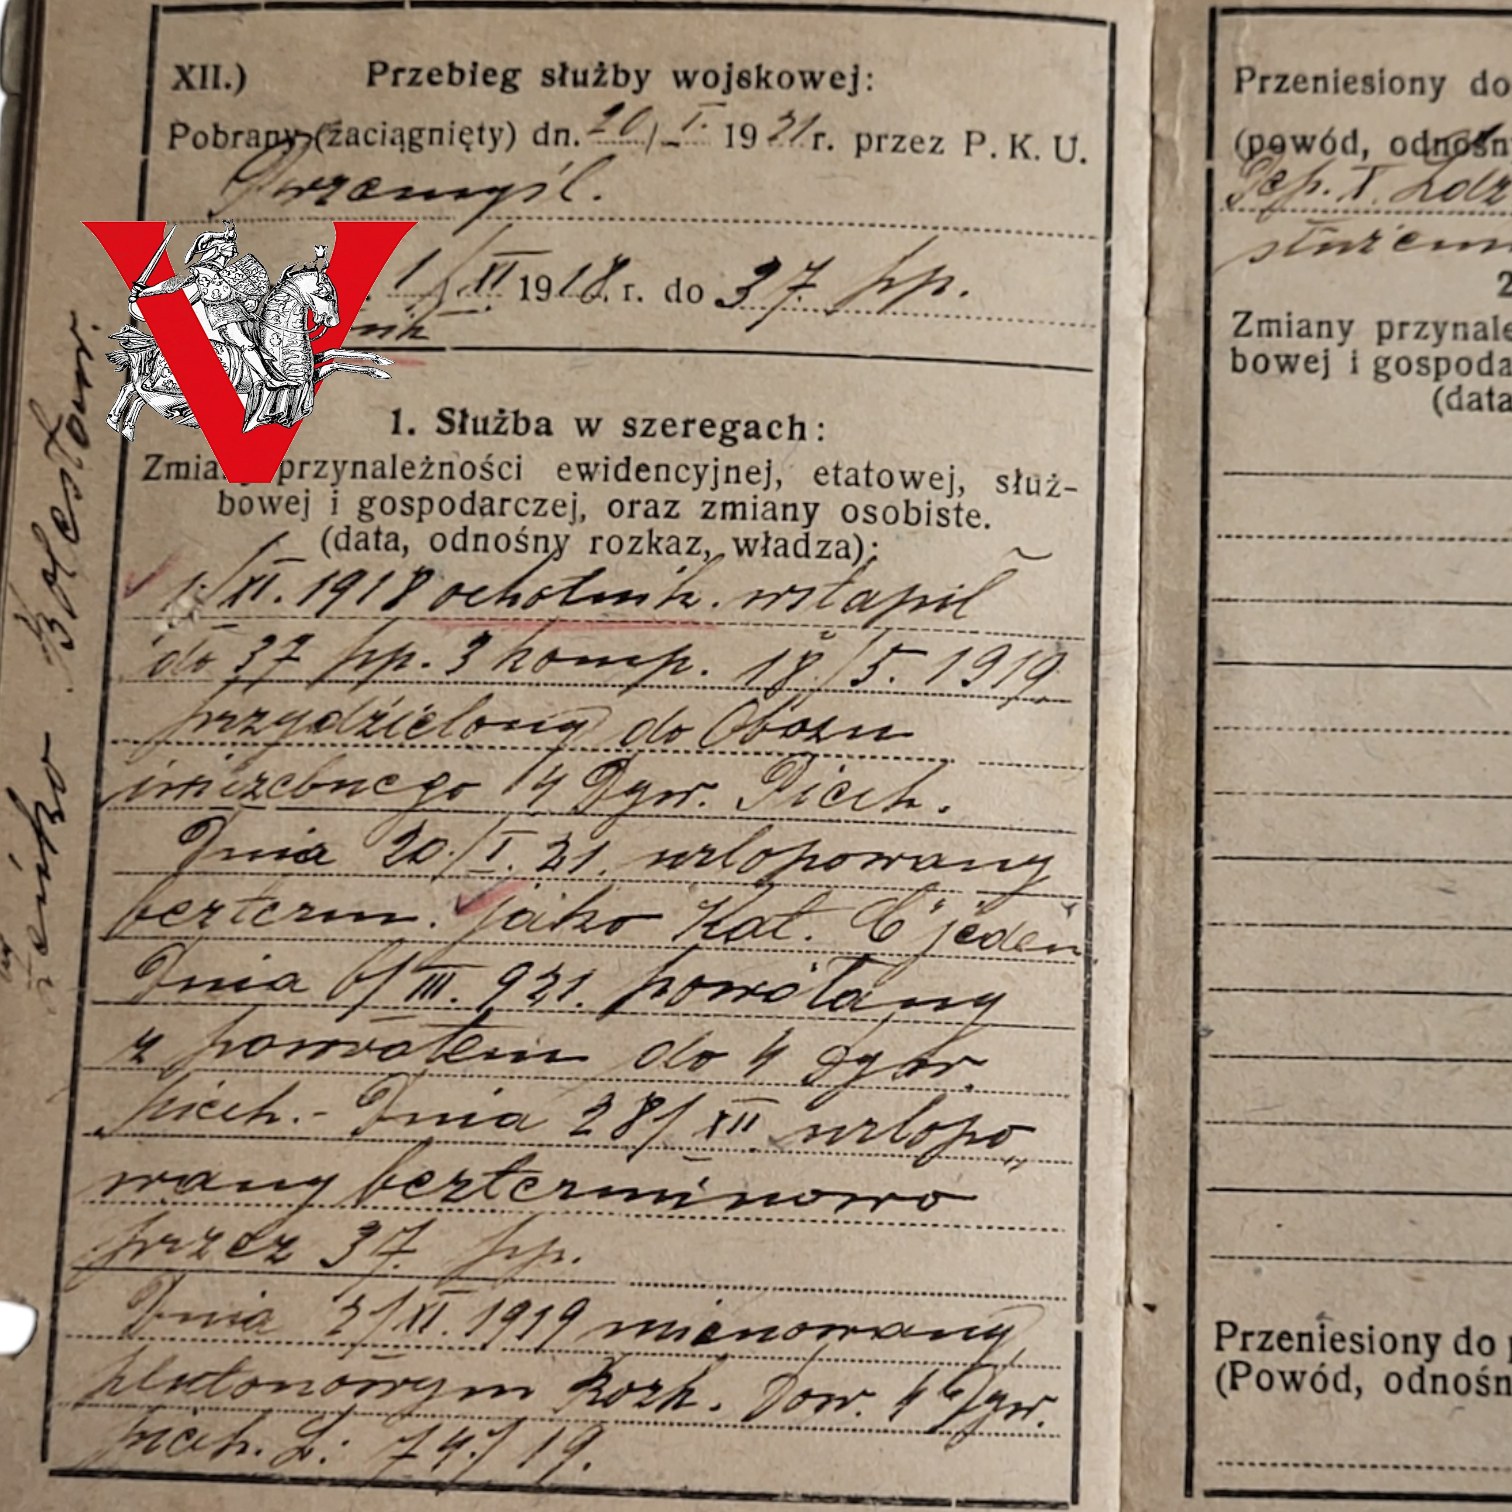 XII.) Przebieg służby wojskowej:
Pobrany (zaciągnięty) dn. 20/I. 1921 r. przez P. K. U.
Przemyśl.
1/XI 1918. r. do 37. pp.
nik
1. Służba w szeregach:
Zmiany przynależności ewidencyjnej, etatowej, służ-
bowej i gospodarczej, oraz zmiany osobiste.
(data, odnośny rozkaz, władza):
1./XI. 1918 ochotnik. wstąpił
do 37 pp. 3 komp. 18/5. 1919
przydzielony do Obozu
4 Dyw. Piech.
Dnia 20./I. 21. urlopowany
bezterm. jako Kat. C jeden
Dnia 6/III. 921. powołany
z powrotem do 4 Dyw.
piech.- Dnia 28/XII urlopo„
wany bezterminowo
przez 37. pp.
Dnia 2/XI. 1919 mienowany
plutonowym Rozk. Dow. 4 Dyw.
piech. L: 74/19.
Bolesław.
Przeniesiony do
(powód, odnośn
Zmiany przynale
bowej i gospoda
(data
Przeniesiony do p
(Powód, odnośn
V